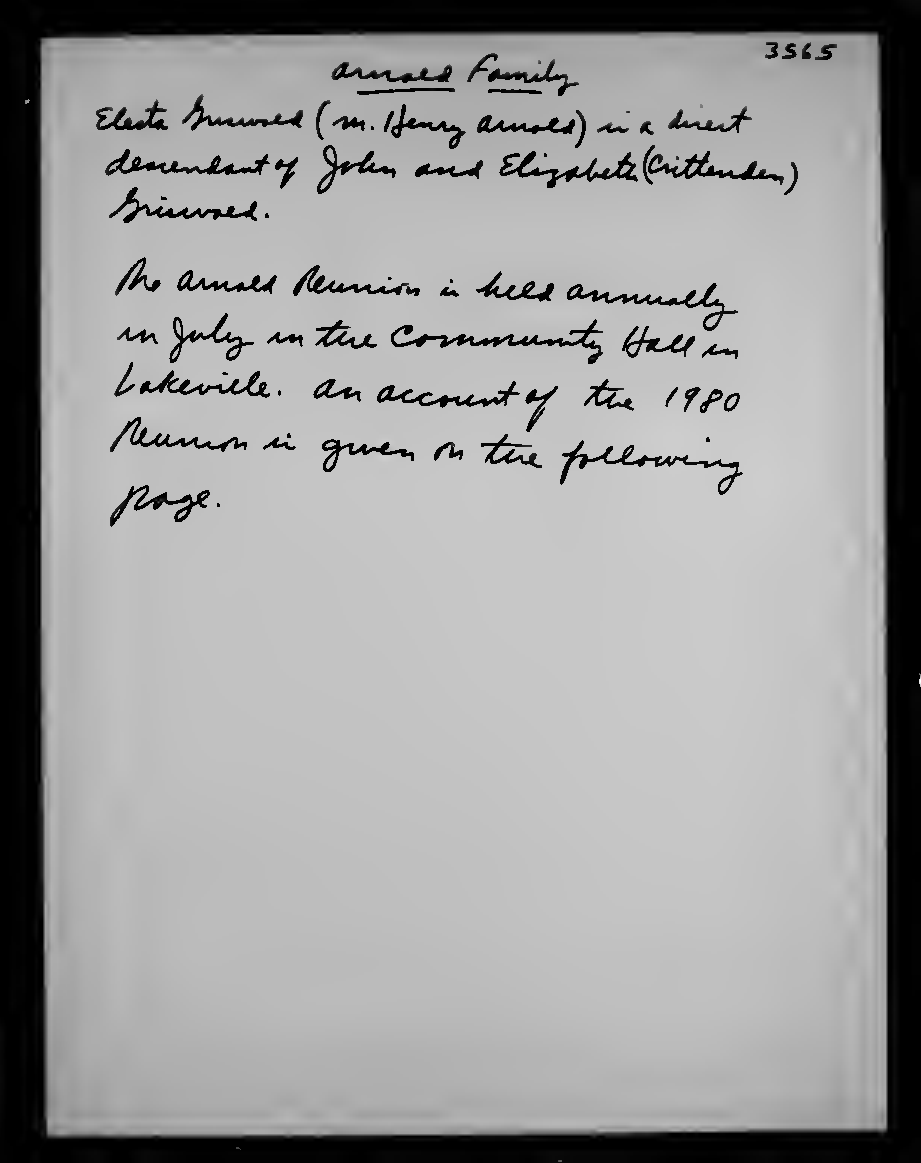 3565
Arnold Family
Electa Griswold (m. Henry Arnold) is a direct
descendant of John and Elizabeth (Crittenden)
Griswold.
The Arnold Reunion is held annually
in July in the Community Hall in
Lakeville. An account of the 1980
Reunion is given on the following
page.